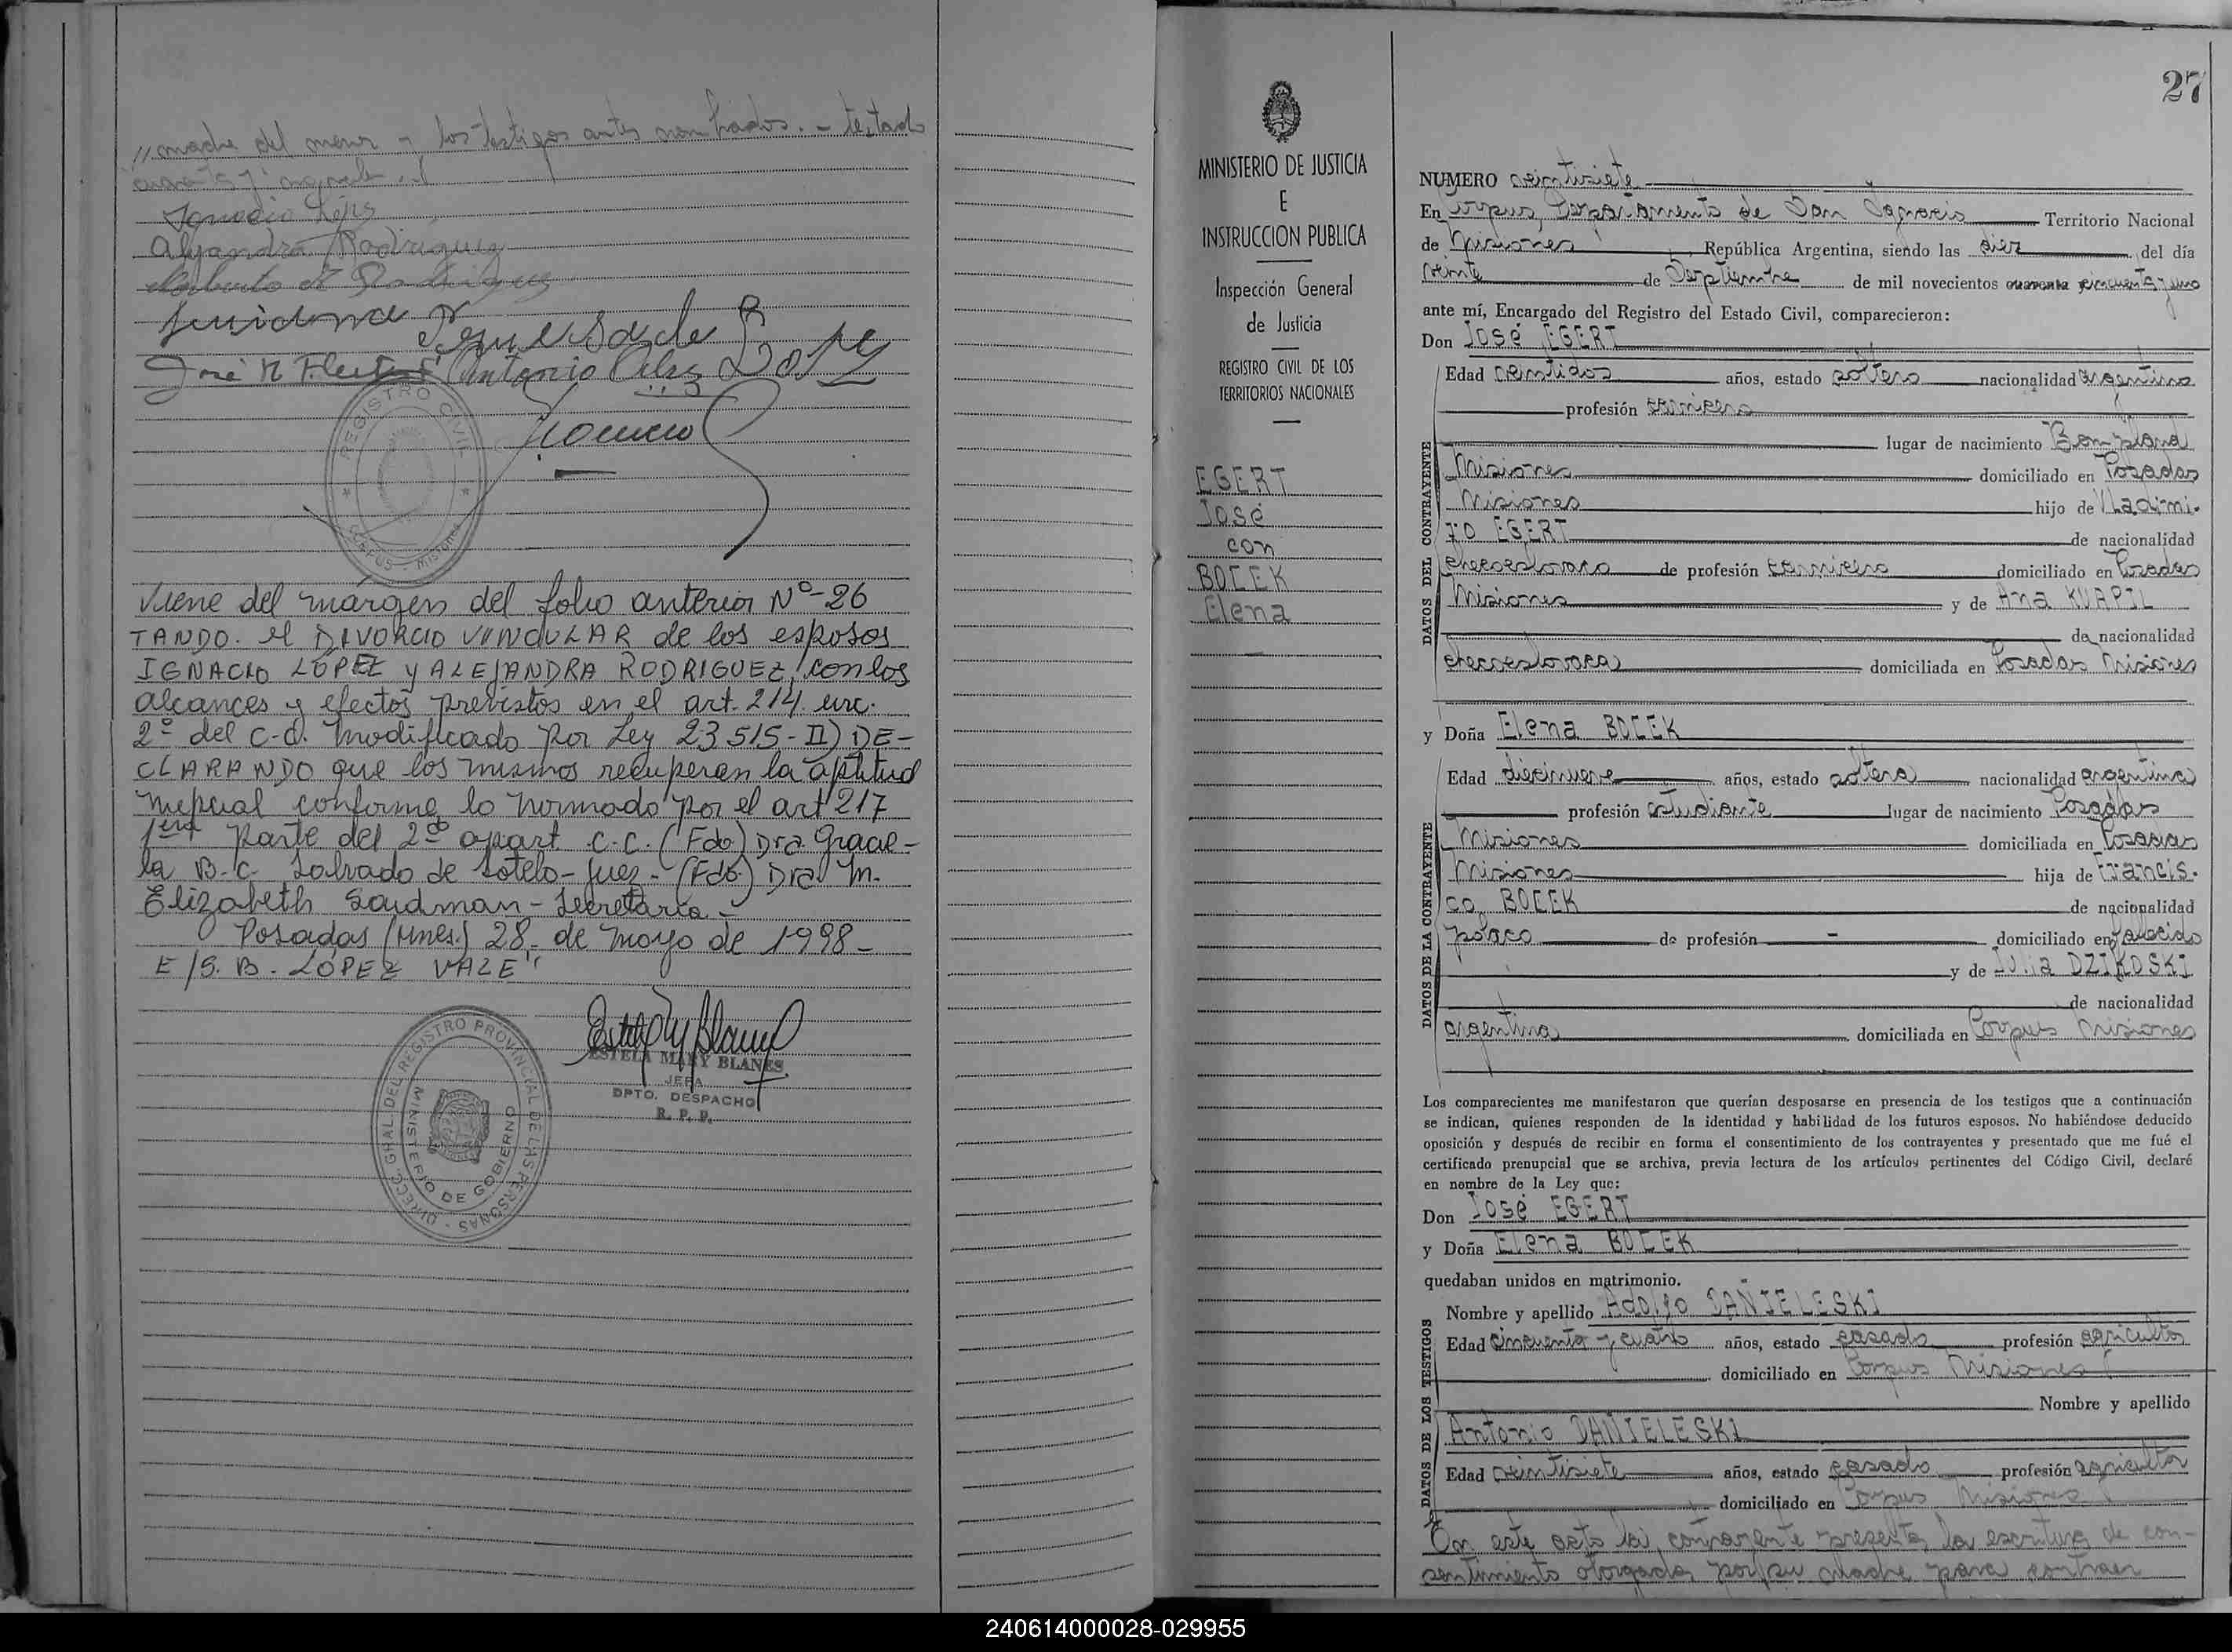 // madre del menor y los testigos antes nombrados. - testado
Ignacio López
Alejandra Rodriguez
José M
Antonio
REGISTRO CIVIL
CORPUS - Misiones
Viene del márgen del folio anterior Nº-26
TANDO. el DIVORCIO VINCULAR de los esposos
IGNACIO LÓPEZ y ALEJANDRA RODRIGUEZ, con los
alcances y efectos previstos en el art. 214. inc.
2º del C.C. modificado por Ley 23515- II) DE-
CLARANDO que los mismos recuperan la aptitud
nupcial conforme lo normado por el art 217
1era parte del 2do apart. C.C. (Fdo) Dra. Gracie-
la B. C. Salvado de Sotelo- Juez- (Fdo) Dra M.
Elizabeth Soudman - Secretaria -
Posadas (Mnes.) 28 - de mayo de 1998-
E/S. B. LÓPEZ VALE"
ESTELA MARY BLANES
JEFA
DPTO. DESPACHO
R. P. P.
DIRECC. GRAL. DEL REGISTRO PROVINCIAL DE LAS PERSONAS
MINISTERIO DE GOBIERNO
MINISTERIO DE JUSTICIA
E
INSTRUCCION PUBLICA
Inspección General
de Justicia
REGISTRO CIVIL DE LOS
TERRITORIOS NACIONALES
EGERT
José
con
BOCEK
Elena
27
NUMERO veintisiete
En Corpus, Departamento de San Ignacio Territorio Nacional
de Misiones, República Argentina, siendo las diez del día
veinte de Septiembre de mil novecientos cuarenta cincuenta y uno
ante mí, Encargado del Registro del Estado Civil, comparecieron:
Don José EGERT
DATOS DEL CONTRAYENTE
Edad veintidos años, estado soltero nacionalidad argentina
profesión carnicero
lugar de nacimiento Bompland
Misiones domiciliado en Posadas
Misiones hijo de Vladimi-
ro EGERT de nacionalidad
checoeslovaco de profesión carnicero domiciliado en Posadas
Misiones y de Ana KVAPIL
de nacionalidad
checoeslovaca domiciliada en Posadas Misiones
y Doña Elena BOCEK
DATOS DE LA CONTRAYENTE
Edad diecinueve años, estado soltera nacionalidad argentina
profesión estudiante lugar de nacimiento Posadas
Misiones domiciliada en Posadas
Misiones hija de Francis-
co BOCEK de nacionalidad
polaco de profesión - domiciliado en falecido
y de Julia DZIKOSKI
de nacionalidad
argentina domiciliada en Corpus Misiones
Los comparecientes me manifestaron que querían desposarse en presencia de los testigos que a continuación
se indican, quienes responden de la identidad y habilidad de los futuros esposos. No habiéndose deducido
oposición y después de recibir en forma el consentimiento de los contrayentes y presentado que me fué el
certificado prenupcial que se archiva, previa lectura de los artículos pertinentes del Código Civil, declaré
en nombre de la Ley que:
Don José EGERT
y Doña Elena BOCEK
quedaban unidos en matrimonio.
DATOS DE LOS TESTIGOS
Nombre y apellido Adolfo DANIELESKI
Edad cincuenta y cuatro años, estado casado profesión agricultor
domiciliado en Corpus Misiones
Nombre y apellido
Antonio DANIELESKI
Edad veintisiete años, estado casado profesión agricultor
domiciliado en Corpus Misiones
En este acto la compareciente presenta la escritura de con-
sentimiento otorgada por su madre para contraer
240614000028-029955